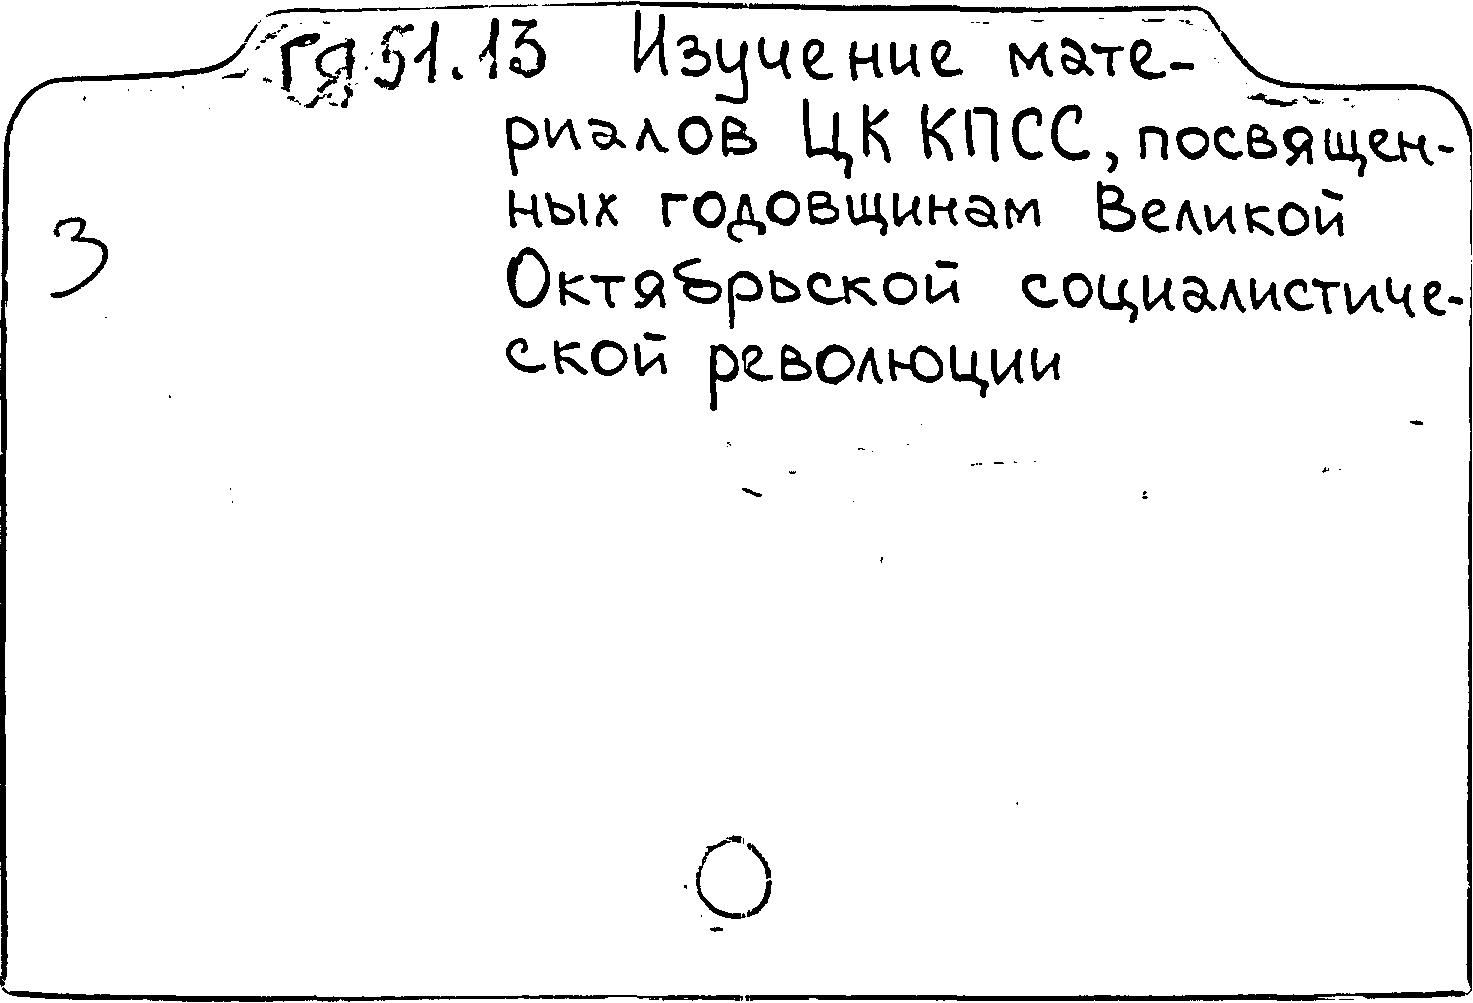 Гя51.13 Изучение мате-
риалов ЦК КПСС, посвящен-
ных годовщинам Великой
3
Октябрьской социалистиче-
ской революции